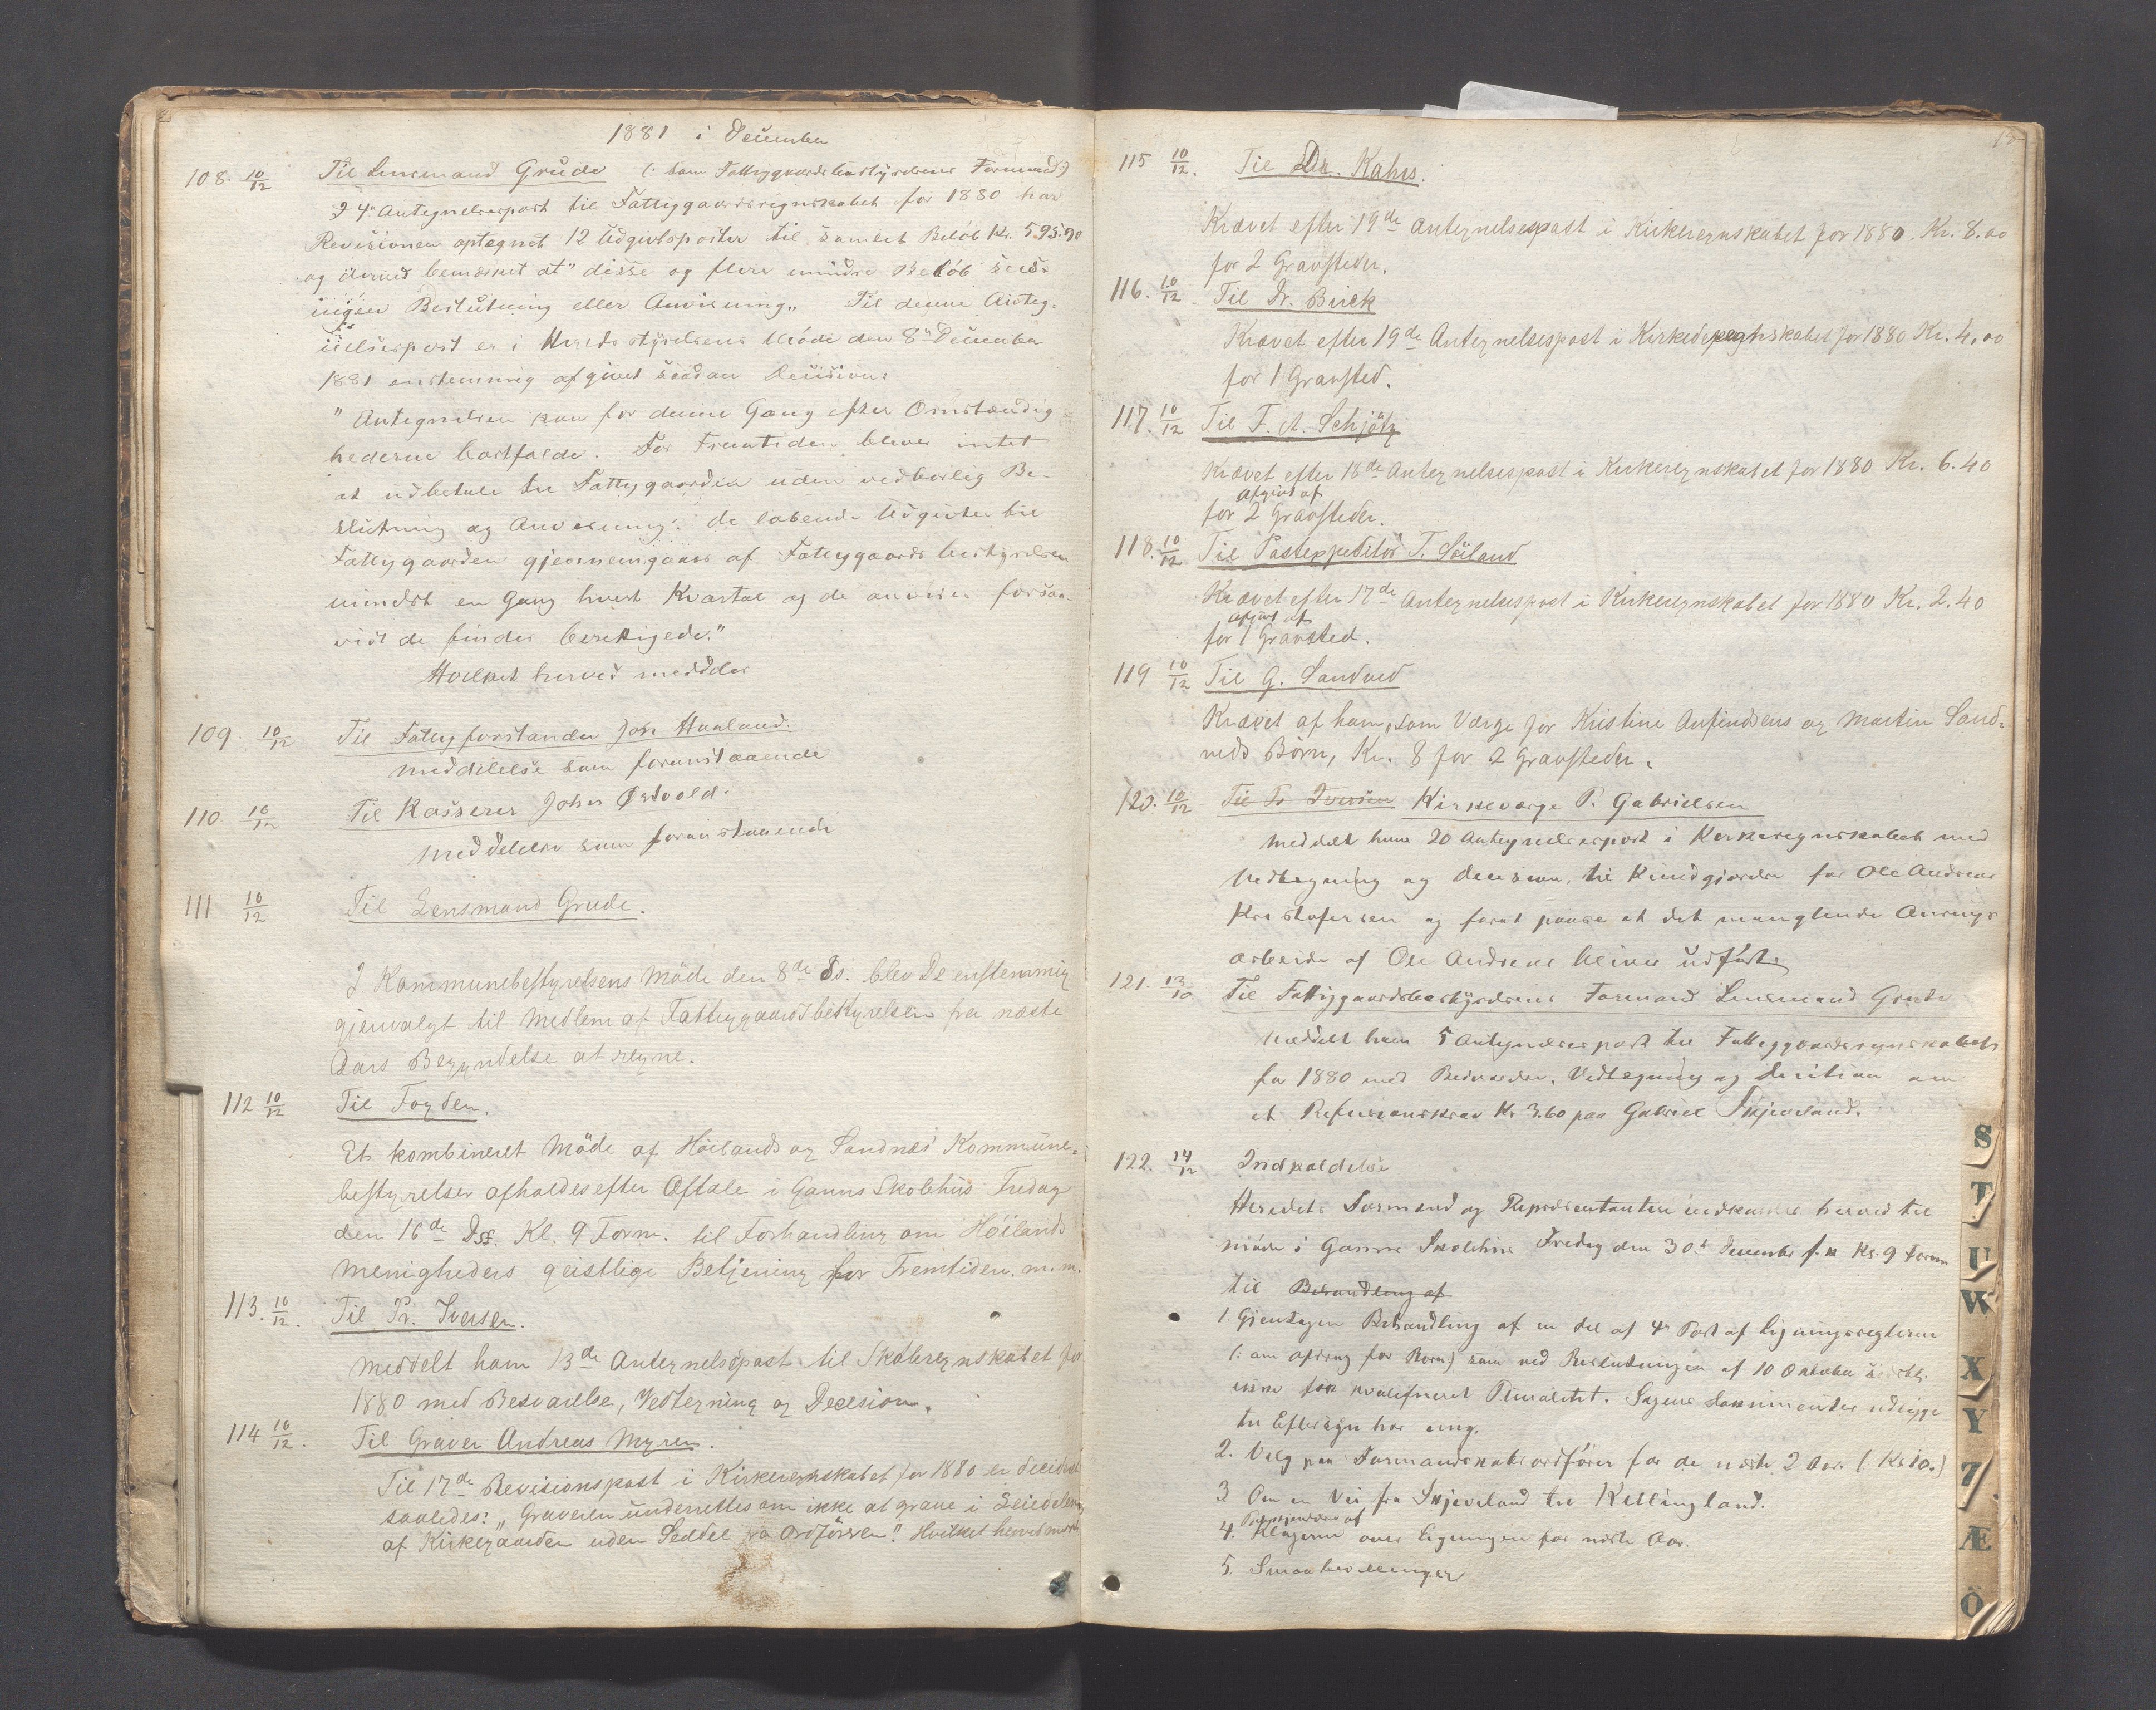 1881 i December
108. 10/12 Til Lensmand Grude (: som Fattiggaardsbestyrelsens Formand:)
I 4de Antegnelsespost til Fattiggaardsregnskabet for 1880 har
Revisionen optegnet 12 Udgiftsposter til samlet Beløb Kr. 595.70
og derved bemærket at "disse og flere mindre Beløb
ingen Beslutning eller Anvisning„ Til denne Anteg-
nelsespost er i Heredsstyrelsens Møde den 8de December
1881 enstemmig afgivet saadan Decision:
"Antegnelsen kan for denne Gang efter Omstændig-
hederne bortfalde. For Fremtiden bliver intet
at udbetale til Fattiggaarden uden vedbørlig Be-
slutning og Anvisning: de løbende Udgifter til
Fattiggaarden gjennemgaaes af Fattiggaardsbestyrelsen
mindst en Gang hvert Kvartal og de anvises forsaa-
vidt de findes berettigede."
Hvilket herved meddeles
109. 10/12 Til Fattigforstander Joh. Haaland.
Meddelelse som foranstaaende
110 10/12 Til Kasserer John Østvold.
Meddelelse som foranstaaende
111 10/12 Til Lensmand Grude.
I Kommunebestyrelsens Møde den 8de ds. blev De enstemmig
gjenvalgt til Medlem af Fattiggaardsbestyrelsen fra næste
Aars Begyndelse at regne.
112 10/12 Til Fogden.
Et kombineret Møde af Høilands og Sandnæs Kommune-
bestyrelser afholdes efter Aftale i Ganns Skolehus Fredag
den 16de Ds. Kl. 9 Form. til Forhandling om Høilands
Menigheders geistlige Betjening for Fremtiden. m.m.
113. 10/12. Til Pr. Iversen.
Meddelt ham 13de Antegnelsespost til Skoleregnskabet for
1880 med Besvarelse, Vedtegning og Decesion.
114 10/12. Til Graver Andreas Myren.
Til 17de Revisionspost i Kirkeregnskabet for 1880 er decideret
saaledes: „Graveren underrettes om ikke at grave i Leiedelen
af Kirkegaarden uden Seddel fra Ordføreren." Hvilket herved
115 10/12. Til Dr. Kahrs.
Krævet efter 19de Antegnelsespost i Kirkeregnskabet for 1880. Kr. 8.00
for 2 Gravsteder.
116. 10/12. Til Dr. Birck
Krævet efter 19de Antegnelsespost i Kirkeregnskabet for 1880 Kr. 4,00
for 1 Gravsted.
117. 10/12 Til F. A. Schjøtz
Krævet efter 18de Antegnelsespost i Kirkeregnskabet for 1880 Kr. 6.40
Afgivt af
for 2 Gravsteder.
118. 10/12 Til Postexpeditør T. Söiland
Krævet efter 17de Antegnelsespost i Kirkeregnskabet for 1880 Kr. 2.40
Afgivt af
for 1 Gravsted.
119 10/12 Til G. Sandved
Krævet af ham, som Værge for Kristine Anfindsens og Martin Sand-
veds Børn, Kr. 8 for 2 Gravsteder.
120. 10/12 Til Pr. Iversen Kirkeværge P. Gabrielsen
Meddelt ham 20 Antegnelsespost i Kirkeregnskabet med
Vedtegning og Decision, til Kundgjørelse for Ole Andreas
Kristofersen og forat paase at det manglende
arbeide af Ole Andreas bliver udført.
121. 13/10. Til Fattiggaardsbestyrelsens Formand Lensmand Grude
Meddelt ham 5 Antegnelsespost til Fattiggaardsregnskabet
for 1880 med Besvarelse, Vedtegning og Decision om
et Refusionskrav Kr 3.60 paa Gabriel Skjæveland.
122. 14/12 Indkaldelse
Heredets Formænd og Repræsentanter indkaldes herved til
møde i Ganns Skolehus Fredag den 30te December f. k Kl. 9 Form
til Behandling af
1. Gjentagen Behandling af en del af 4de Post af Ligningsreglerne
(: om afdrag for Børn:) som ved Beslutningen af 10 Oktober
ikke fik kvalifieret Pluralitet. Sagens dokumenter udligge
til Eftersyn hos mig.
2. Valg paa Formandskabsordfører for de næste 2 Aar (. Kr 10.)
3 Om en Vei fra Skjæveland til Kellingland.
4. Klagerne over Ligningen for næste Aar.
5. Smaabevillinger
S
T
U
W
X
Y
Z
Æ
Ö